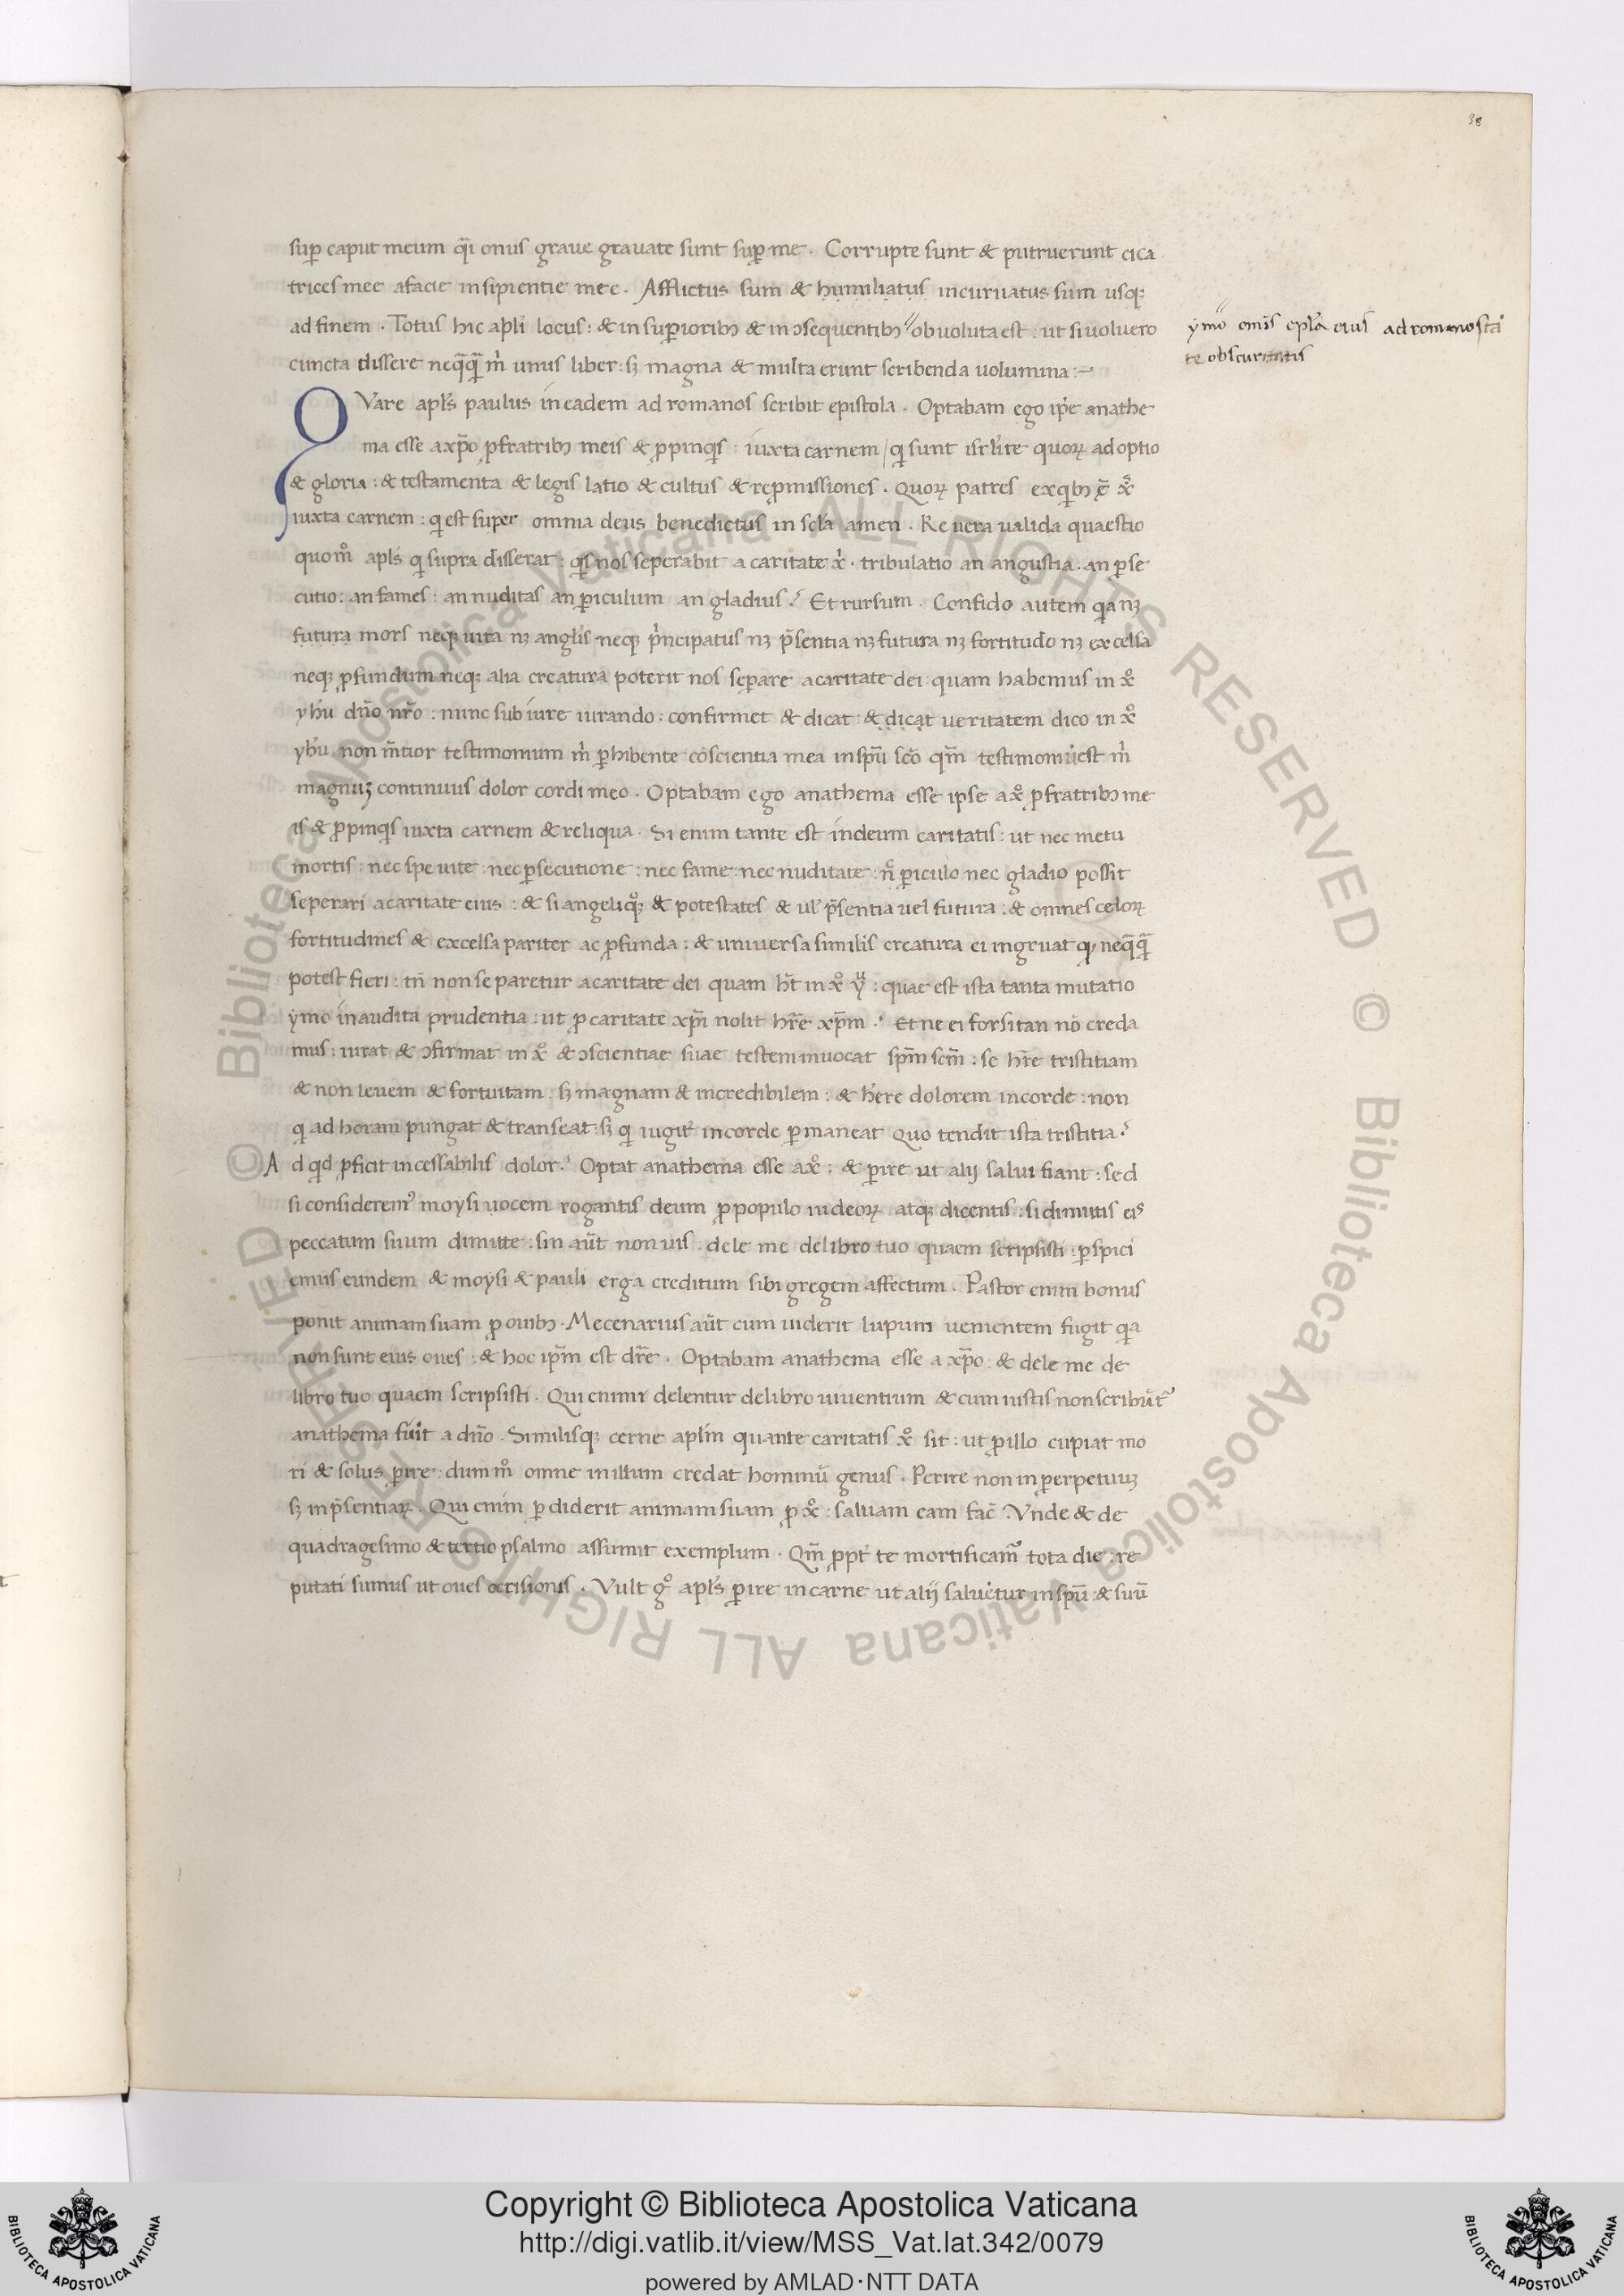 38
suꝑ caput meum q̃i onus graue grauate sunt suꝑ me . Corrupte sunt & putruerunt cica
trices mee afacie insipientie mee . Afflictus sum & humiliatus incuruatus sum usqꝫ
ad finem . Totus hic apl̃i locus : & in suꝑioribꝫ & in ↄsequentibꝫ // obuoluta est : ut si uoluero
ymo // omĩs epl̃a eius ad romanos tãta
te obscuritatis
cuncta dissere neq̃q̃ m̉ unus liber : sꝫ magna & multa erunt scribenda uolumina :~
QVare apl̃s paulus in eadem ad romanos scribit epistola . Optabam ego ip̃e anathe
ma esse a xp̃o ꝓ fratribꝫ meis & ꝓpinqͥs : iuxta carnem / qͥ sunt isrl̃ite quoꝝ adoptio
& gloria : & testamenta & legis latio & cultus & reꝓmissiones . Quoꝝ patres ex qͥbꝫ ẽ x̊
iuxta carnem : qͥ est super omnia deus benedictus in scl̃a amen . Re uera ualida quaestio
quom̊ apl̃s qͥ supra disserat : qͥs nos seperabit a caritate xͥ . tribulatio an angustia . an ꝑse
cutio : an fames : an nuditas an ꝑiculum an gladius ? Et rursum . Confido autem qͥa nꝫ
futura mors neqꝫ uita nꝫ angl̃s neqꝫ pͥncipatus nꝫ p̃sentia nꝫ futura nꝫ fortitudo nꝫ excelsa
neqꝫ ꝓfundum neqꝫ alia creatura poterit nos seꝑare a caritate dei quam habemus in x̊
yhũ dño nr̃o : nunc sub iure iurando : confirmet & dicat : & dicat ueritatem dico in x̊
yhũ non mẽtior testimonium m̉ ꝑhibente cõscientia mea in spũ scõ qm̃ testimoniũ est m̉
magnuꝫ continuus dolor cordi meo . Optabam ego anathema esse ipse a x̊ ꝓ fratribꝫ me
is & ꝓpinqͥs iuxta carnem & reliqua . Si enim tante est in deum caritatis : ut nec metu
mortis : nec spe uite : nec ꝑsecutione : nec fame : nec nuditate : n̊ ꝑiculo nec gladio possit
seperari a caritate eius : & si angeliqꝫ & potestates & ul̃ p̃sentia uel futura : & omnes celoꝝ
fortitudines & excelsa pariter ac ꝓfunda : & uniuersa similis creatura ei ingruat qͥ neq̃q̃
potest fieri : tñ non separetur a caritate dei quam ht̃ in x̊ y̌ : quae est ista tanta mutatio
ymo inaudita prudentia : ut ꝓ caritate xp̃i nolit hr̃e xp̃m ? Et ne ei forsitan nõ creda
mus : iurat & ↄfirmat in x̊ & ↄscientiae suae testem inuocat sp̃m scm̃ : se hr̃e tristitiam
& non leuem & fortuitam : sꝫ magnam & incredibilem : & h̃ere dolorem in corde : non
qͥ ad horam pungat & transeat : sꝫ qͥ iugit̉ in corde ꝑmaneat Quo tendit ista tristitia ?
Ad qͥd ꝓficit incessabilis dolor ? Optat anathema esse a x̊ : & ꝑire ut alij salui fiant : sed
si consideremꝰ moysi uocem rogantis deum ꝓ populo iudeoꝝ atqꝫ dicentis : si dimittis eis
peccatum suum dimitte : sin aũt non uis . dele me de libro tuo quaem scripsisti : ꝑspici
emus eundem & moysi & pauli erga creditum sibi gregem affectum . Pastor enim bonus
ponit animam suam ꝓ ouibꝫ . Mecenarius aũt cum uiderit lupum uenientem fugit qͥa
non sunt eius oues : & hoc ip̃m est dr̃e . Optabam anathema esse a xp̃o : & dele me de
libro tuo quaem scripsisti . Qui enim delentur de libro uiuentium & cum iustis non scribũt̃
anathema fuit a dño . Similisqꝫ cerne apl̃m quante caritatis x̊ sit : ut ꝓ illo cupiat mo
ri & solus ꝑire : dum m̊ omne in illum credat hominũ genus . Perire non in ꝑpetuuꝫ
sꝫ in p̃sentiaꝝ . Qui enim ꝑdiderit animam suam ꝓ x̊ : saluam eam fac̃ . Vnde & de
quadragesimo & tertio psalmo assumit exemplum . Qm̃ ꝓpt̉ te mortificamꝰ tota die : re
putati sumus ut oues occisionis . Vult g̊ apl̃s ꝑire in carne ut alij saluẽtur in spũ : & suũ
© Biblioteca Apostolica Vaticana ALL RIGHTS RESERVED © Biblioteca Apostolica Vaticana ALL RIGHTS RESERVED
Copyright © Biblioteca Apostolica Vaticana
http://digi.vatlib.it/view/MSS_Vat.lat.342/0079
powered by AMLAD·NTT DATA
BIBLIOTECA APOSTOLICA VATICANA
BIBLIOTECA APOSTOLICA VATICANA